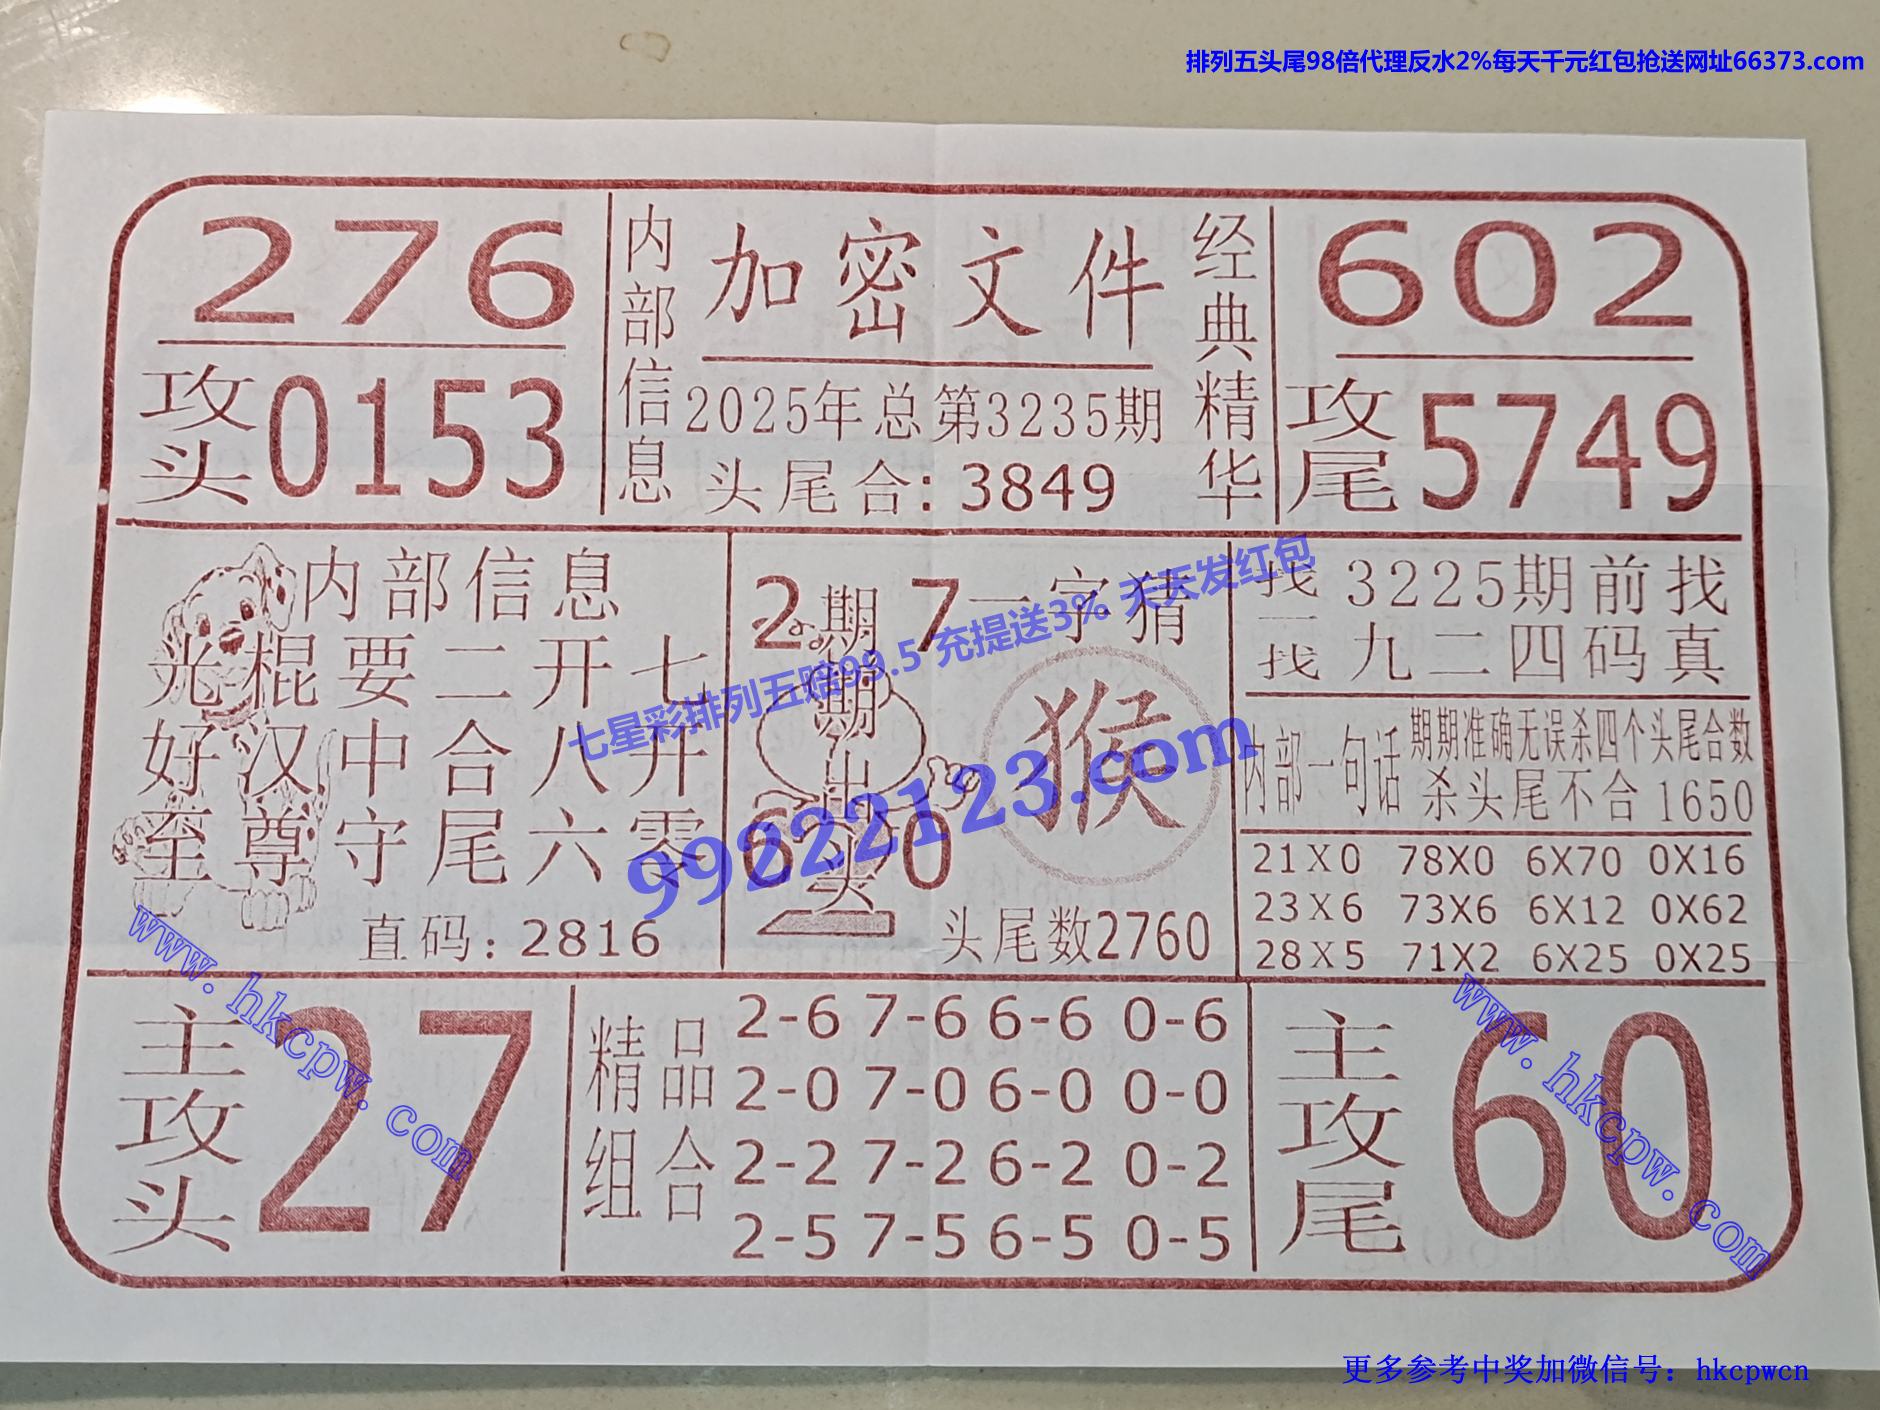 排列五头尾98倍代理反水2%每天千元红包抢送网址66373.com
276
攻头0153
内部信息
加密文件
2025年总第3235期
头尾合:3849
经典精华
602
攻尾5749
内部信息
光棍要二开七
好汉中合八开
至尊守尾六零
直码:2816
2 7
期期出头
6 0
一字猜
猴
头尾数2760
找一找
3225期前找
九二四码真
内部一句话
期期准确无误杀四个头尾合数
杀头尾不合1650
21X0 78X0 6X70 0X16
23X6 73X6 6X12 0X62
28X5 71X2 6X25 0X25
主攻头27
精品组合
2-6 7-6 6-6 0-6
2-0 7-0 6-0 0-0
2-2 7-2 6-2 0-2
2-5 7-5 6-5 0-5
主攻尾60
七星彩排列五赔99.5 充提送3% 天天发红包
99222123.com
www.hkcpw.com
www.hkcpw.com
更多参考中奖加微信号：hkcpwcn